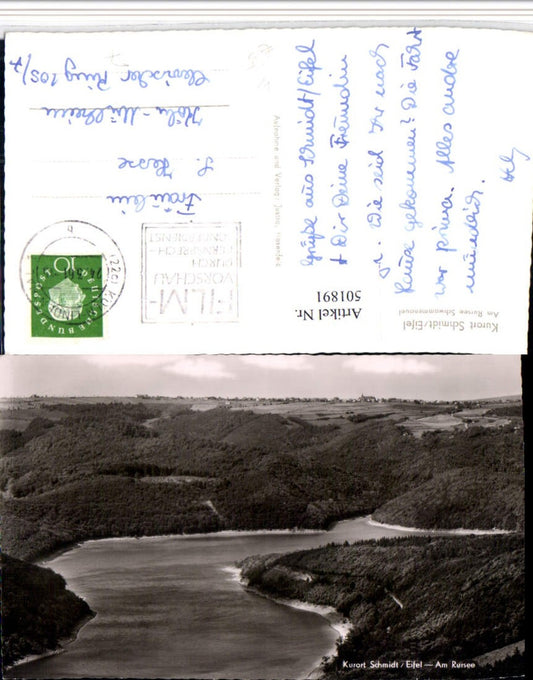 Grüße aus Schmidt/Eifel
Dir Deine Freundin
Wie seid Ihr nach
Hause gekommen? Die Fahrt
war prima. Alles andre
mündlich.
Kurort Schmidt/Eifel
Am Rursee Schwammenauel
Aufnahme und Verlag
Artikel Nr.
501891
FILM-
VORSCHAU
DURCH
FERNSPRECH-
KUNDENDIENST
10
DEUTSCHE BUNDESPOST
(22c) KÖLN
b
Fräulein
Hesse
Köln-Mülheim
Clevischer Ring 105/7
Kurort Schmidt / Eifel — Am Rursee